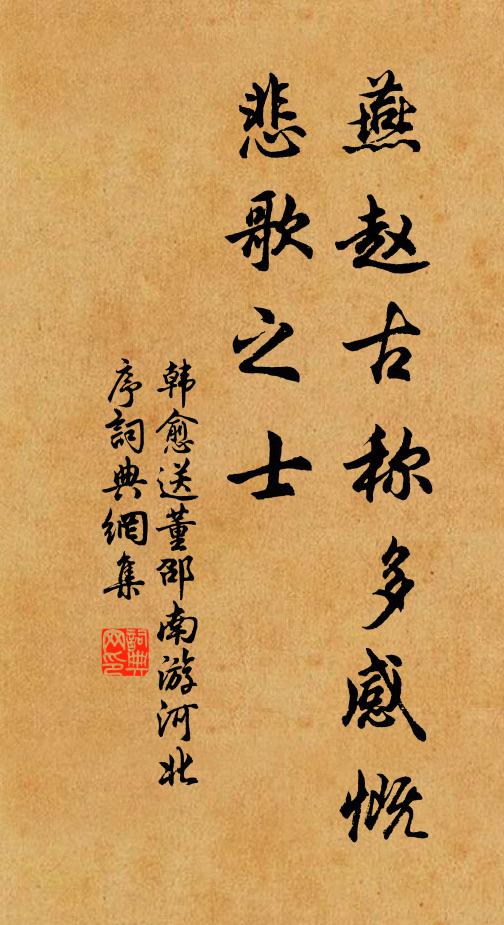 燕赵古称多感慨
悲歌之士
韩愈送董邵南游河北
序詞典網集
詞典网印